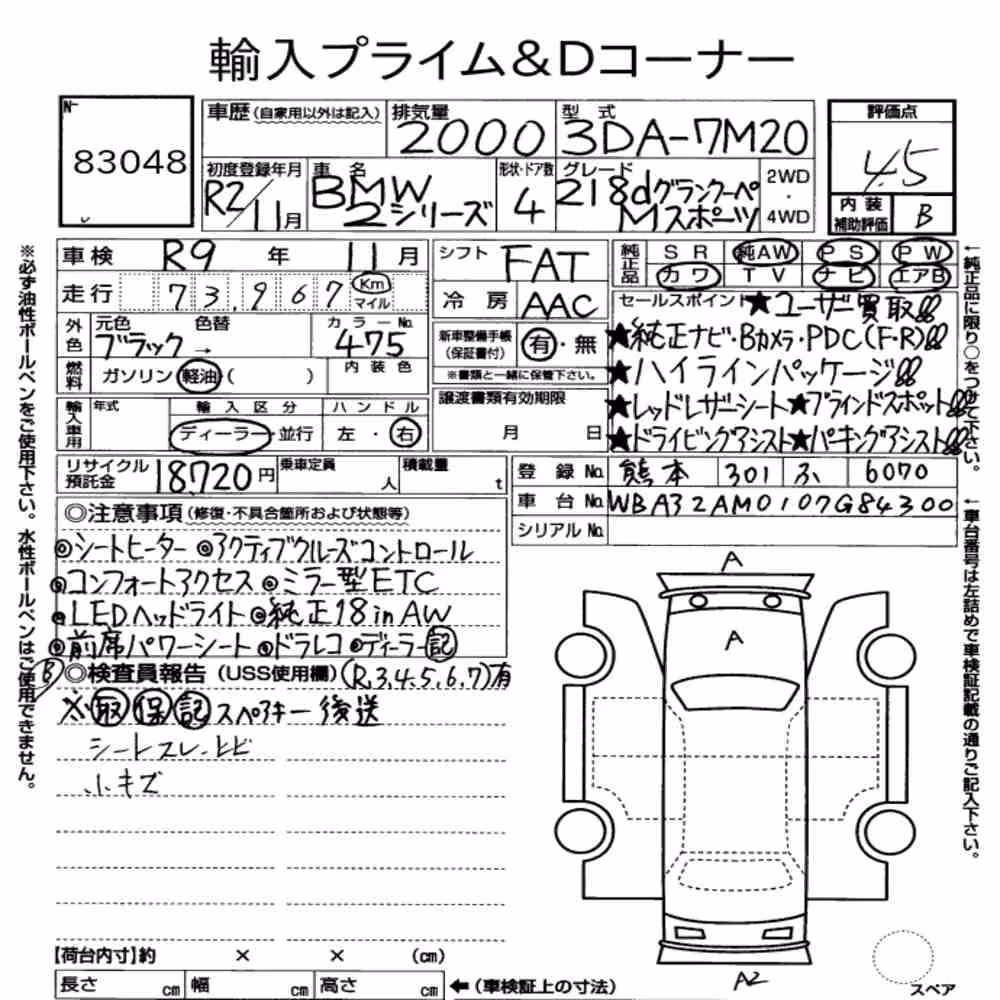 輸入プライム&Dコーナー
No.
83048
車歴(自家用以外は記入)
排気量
2000
型式
3DA-7M20
評価点
4.5
初度登録年月
R2/11月
車名
BMW
2シリーズ
形状・ドア数
4
グレード
218dグランクーペ
Mスポーツ
2WD
・
4WD
内装
補助評価
B
車検 R9 年 11月
走行 73,967 Km
マイル
シフト FAT
冷房 AAC
純正品
SR 純AW PS PW
カワ TV ナビ エアB
セールスポイント ★ユーザー買取!!
★純正ナビ・Bカメラ・PDC(F・R)!!
★ハイラインパッケージ!!
★レッドレザーシート★ブラインドスポット!!
★ドライビングアシスト★パーキングアシスト!!
外色
元色 色替
ブラック→
カラーNo.
475
新車整備手帳
(保証書付)
有・無
※書類と一緒に保管下さい。
燃料
ガソリン 軽油( )
内装色
輸入車用
年式
輸入区分
ディーラー・並行
ハンドル
左・右
譲渡書類有効期限
月 日
リサイクル
預託金
18,720円
乗車定員
人
積載量
t
登録No. 熊本 301 ふ 6070
車台No. WBA32AM0107G84300
シリアルNo.
◎注意事項(修復・不具合箇所および状態等)
◎シートヒーター ◎アクティブクルーズコントロール
◎コンフォートアクセス ◎ミラー型ETC
◎LEDヘッドライト ◎純正18inAW
◎前席パワーシート ◎ドラレコ ◎ディーラー記
B (R,3,4,5,6,7)有
◎検査員報告(USS使用欄)
※取保記スペアキー後送
シートスレ・ヒビ
小キズ
A
A
A2
スペア
【荷台内寸】約 × × (cm)
長さ cm 幅 cm 高さ cm
←(車検証上の寸法)
※必ず油性ボールペンをご使用下さい。水性ボールペンはご使用できません。
←純正品に限り○をつけて下さい。
←車台番号は左詰めで車検証記載の通りご記入下さい。